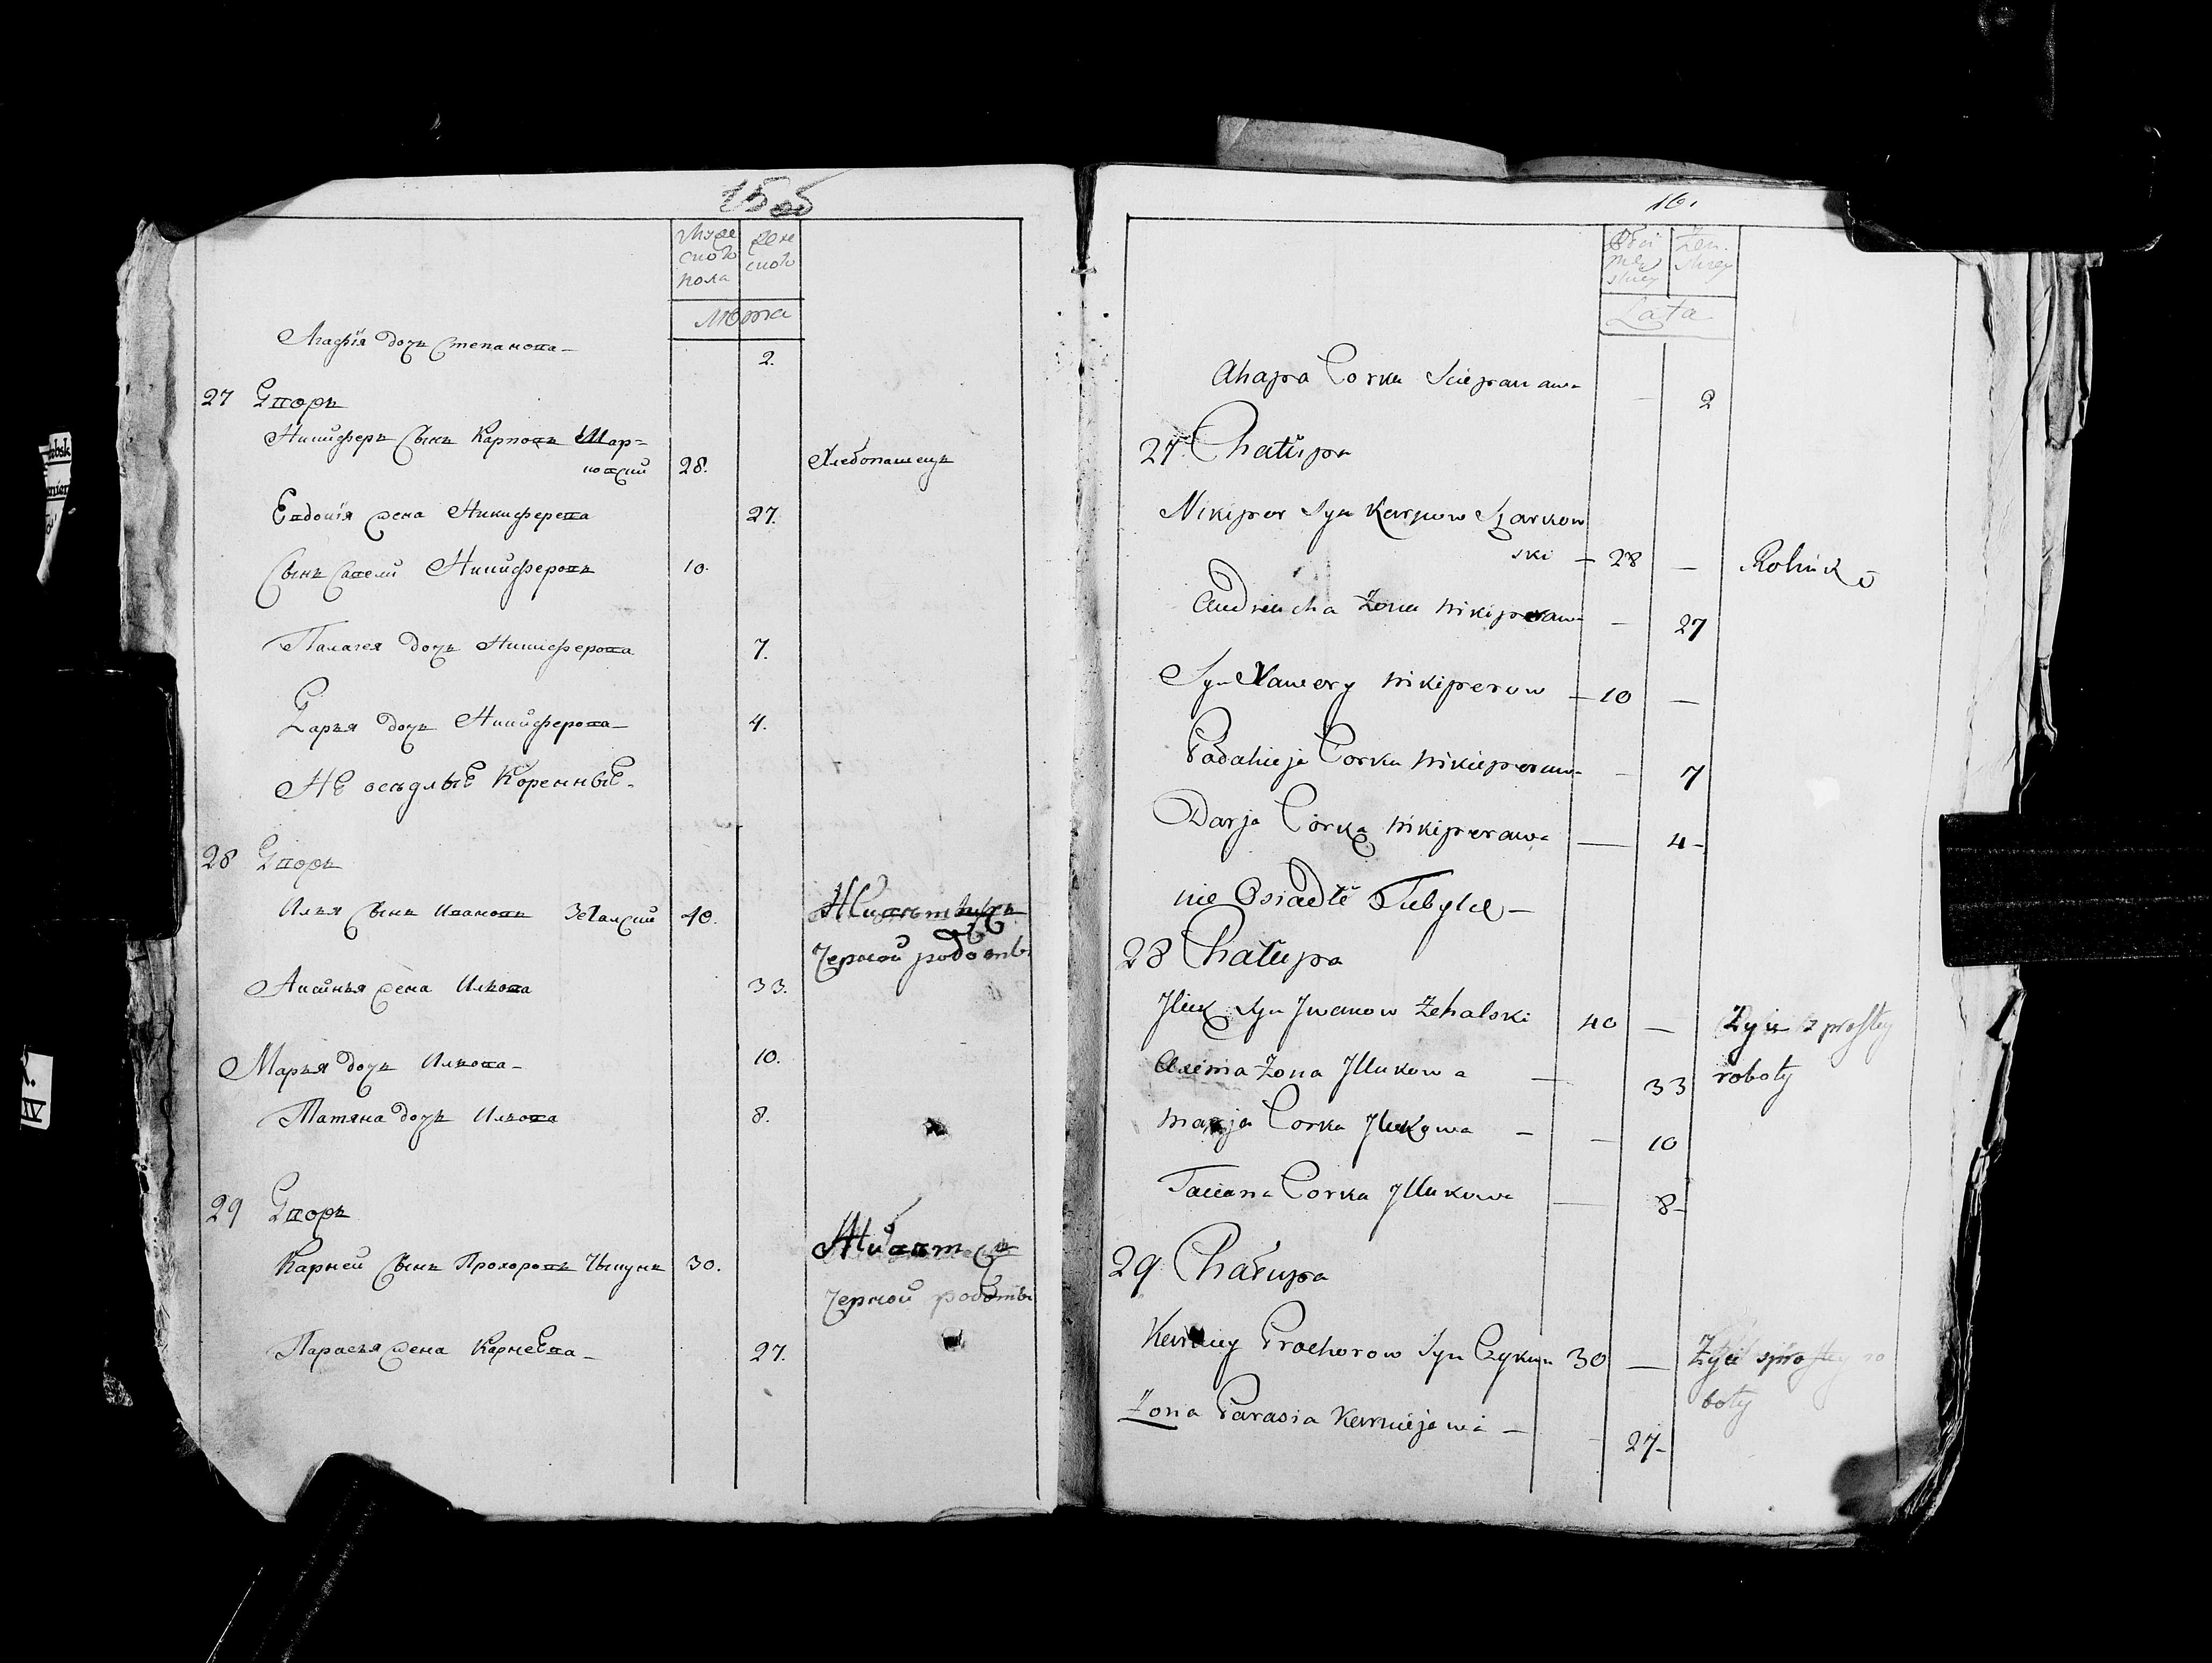 15 об
Муже
ского
пола
Жен
ского
Лѣта
Агафія дочь Степанова - 2.
27 Дворъ
Никиферъ Сынъ Карповъ Шар=
ковский 28. Хлебопашецъ
Евдокія жена Никиферова 27.
Сынъ Савелий Никиферовъ 10.
Палагея дочь Никиферова 7.
Дарья дочь Никиферова - 4.
НЕ осѣдлыЕ КоренныЕ.
28 Дворъ
Илья Сынъ Ивановъ ЗеГалский 40. Живетъ
Черной роботы
Аксинья жена Илькова 33.
Марья дочь Илькова - 10.
Татяна дочь Илькова 8.
29 Дворъ
Карней Сынъ Прохоровъ Чыкунъ 30. Живетъ
Черной роботы
Парасья жена КарнеЕва - 27.
16.
Płci
mę
skiey
Żeń.
skiey
Lata
Ahapa Corka Sciepanawa — 2
27 Chałupa
Nikiper Syn Karpow Szarkow
ski — 28 — Rolnik
Żona Nikiperawa — 27
Syn Xawery Nikiperow — 10 —
Corka Nikiperawa — 7
Darja Corka Nikiperawa — 4 —
nie Osiadłe Tubylce —
28 Chałupa
Jluk Syn Jwanow Żehalski 40 — Żyie z prostey
roboty
Axenia Żona Jllukowa — 33
Marja Corka Jlukowa — — 10
Taciana Corka Jllukowa — 8 —
29 Chałupa
Karniey Prochorow Syn Czykun 30 — Żyie s prostey ro
boty
Żona Parasia Karniejewa — 27 -